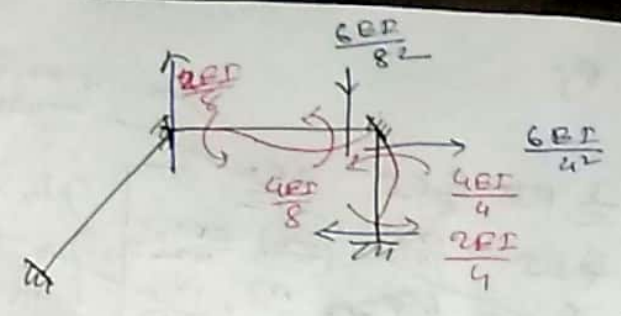 6EI
8²
2EI
8
6EI
4²
4EI
8
4EI
4
2EI
4